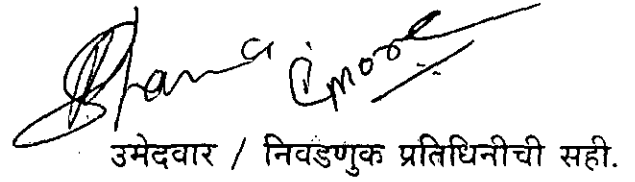 उमेदवार / निवडणुक प्रतिधिनीची सही.